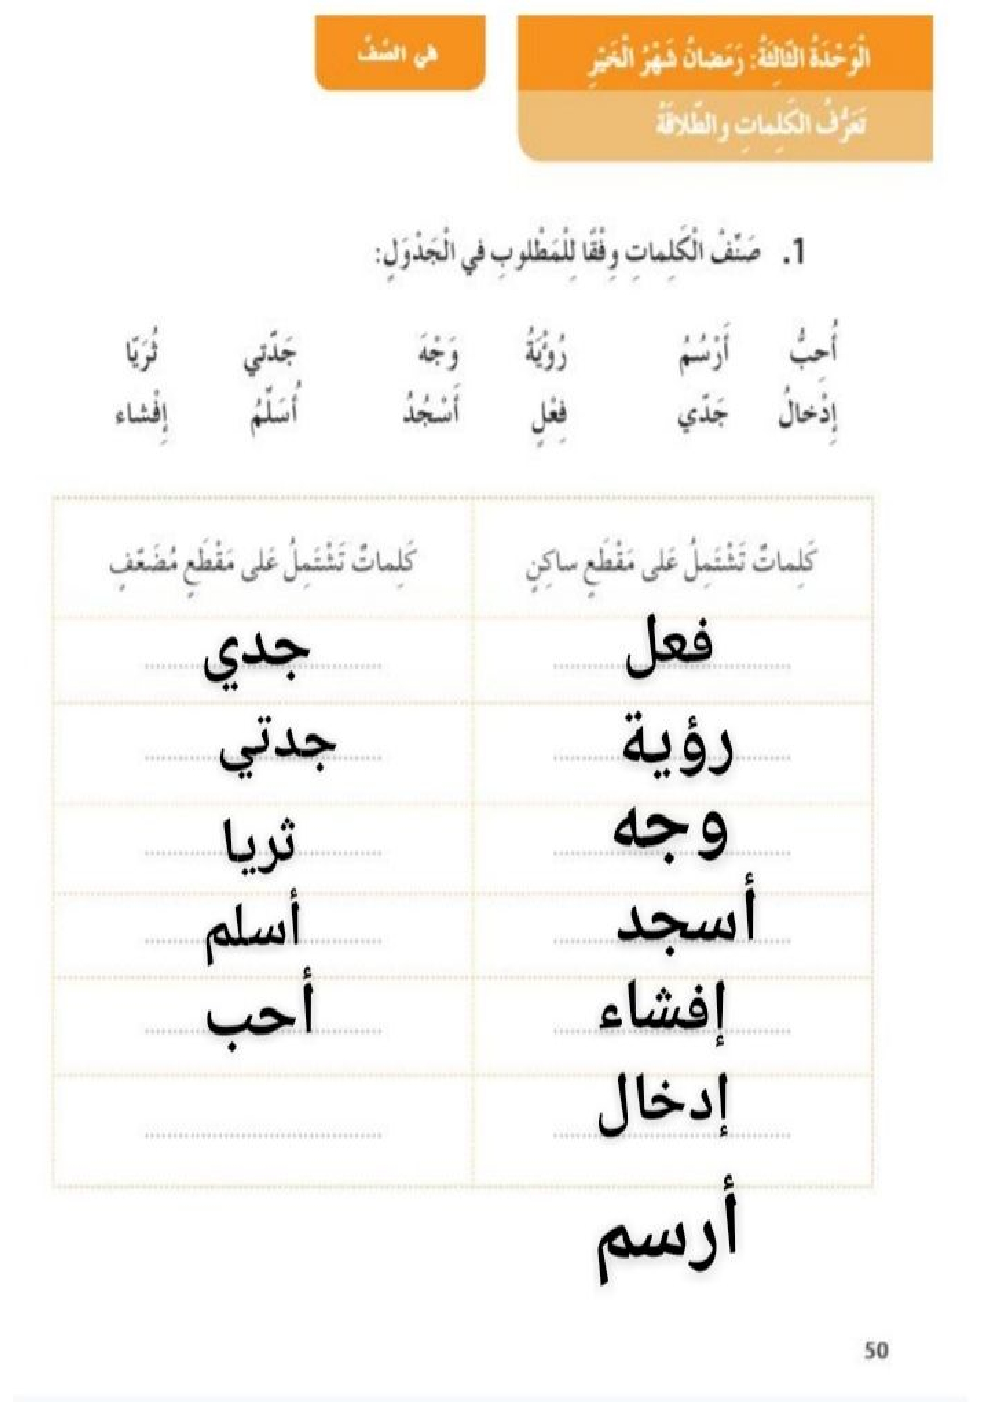 الْوَحْدَةُ الثّالِثَةُ: رَمَضانُ شَهْرُ الْخَيْرِ
في الصَّفِّ
تَعَرُّفُ الكَلِماتِ والطَّلاقَةُ
1. صَنِّفْ الْكَلِماتِ وِفْقًا لِلْمَطْلوبِ في الْجَدْوَلِ:
أُحِبُّ أَرْسُمُ رُؤْيَةُ وَجْهَ جَدَّتي ثُرَيّا
إِدْخالُ جَدّي فِعْلِ أَسْجُدُ أُسَلِّمُ إِفْشاء
كَلِماتٌ تَشْتَمِلُ عَلى مَقْطَعٍ ساكِنٍ كَلِماتٌ تَشْتَمِلُ عَلى مَقْطَعٍ مُضَعَّفٍ
فعل جدي
رؤية جدتي
وجه ثريا
أسجد أسلم
إفشاء أحب
إدخال
أرسم
50